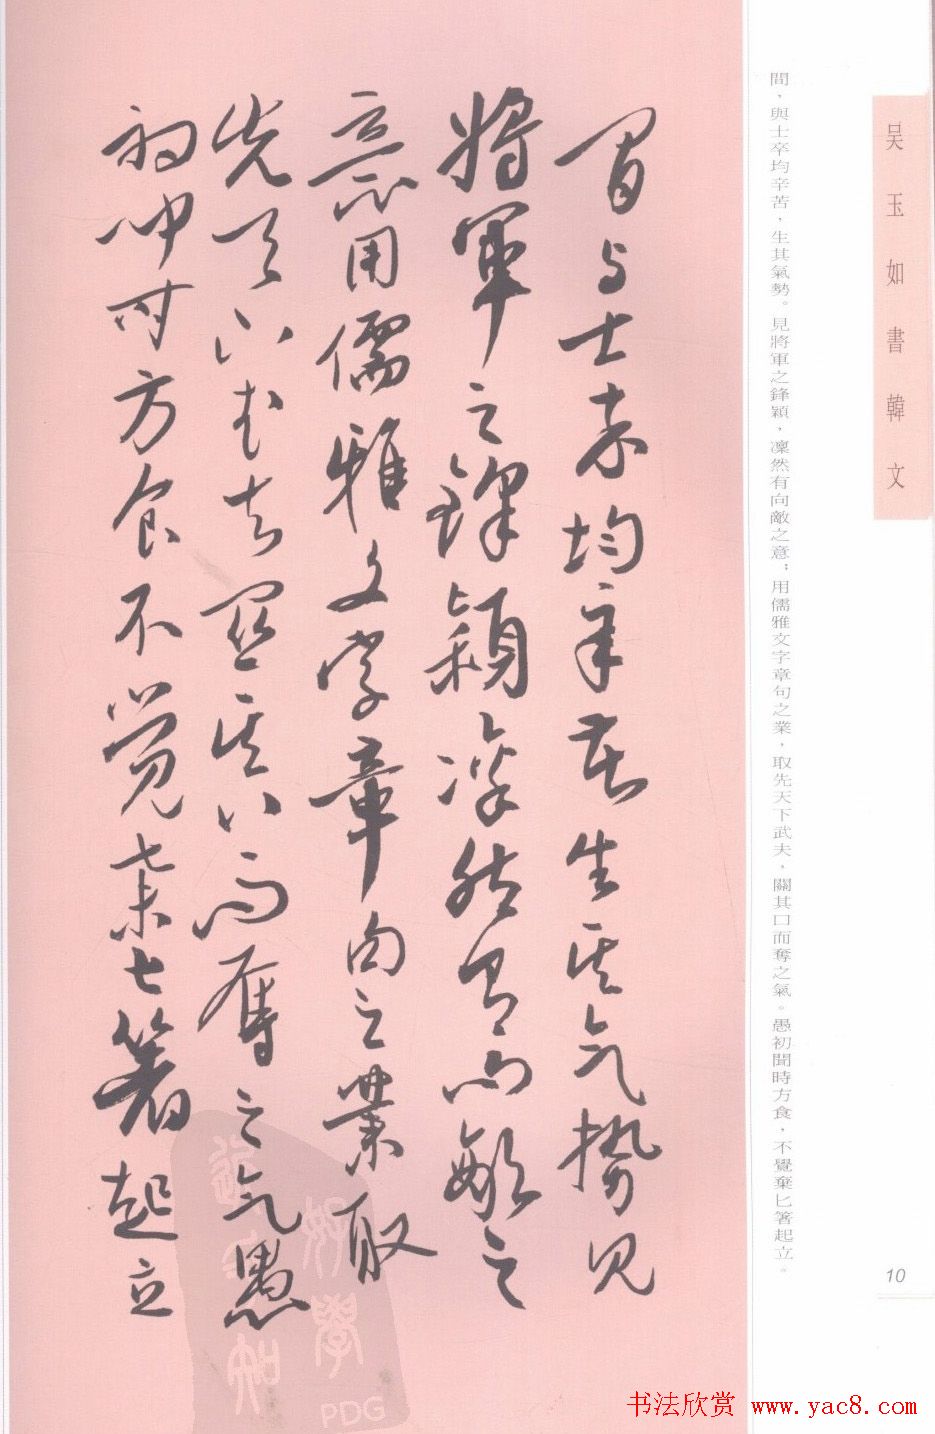 吴玉如書韓文
10
間，與士卒均辛苦，生其氣勢。見將軍之鋒穎，凜然有向敵之意；用儒雅文字章句之業，取先天下武夫，關其口而奪之氣。愚初聞時方食，不覺棄匕箸起立。
間与士卒均辛苦生其气勢見
將軍之鋒穎凜然有向敵之
意用儒雅文字章句之業取
先天下武夫關其口而奪之气愚
初聞时方食不覺棄匕箸起立
PDG
书法欣赏 www.yac8.com